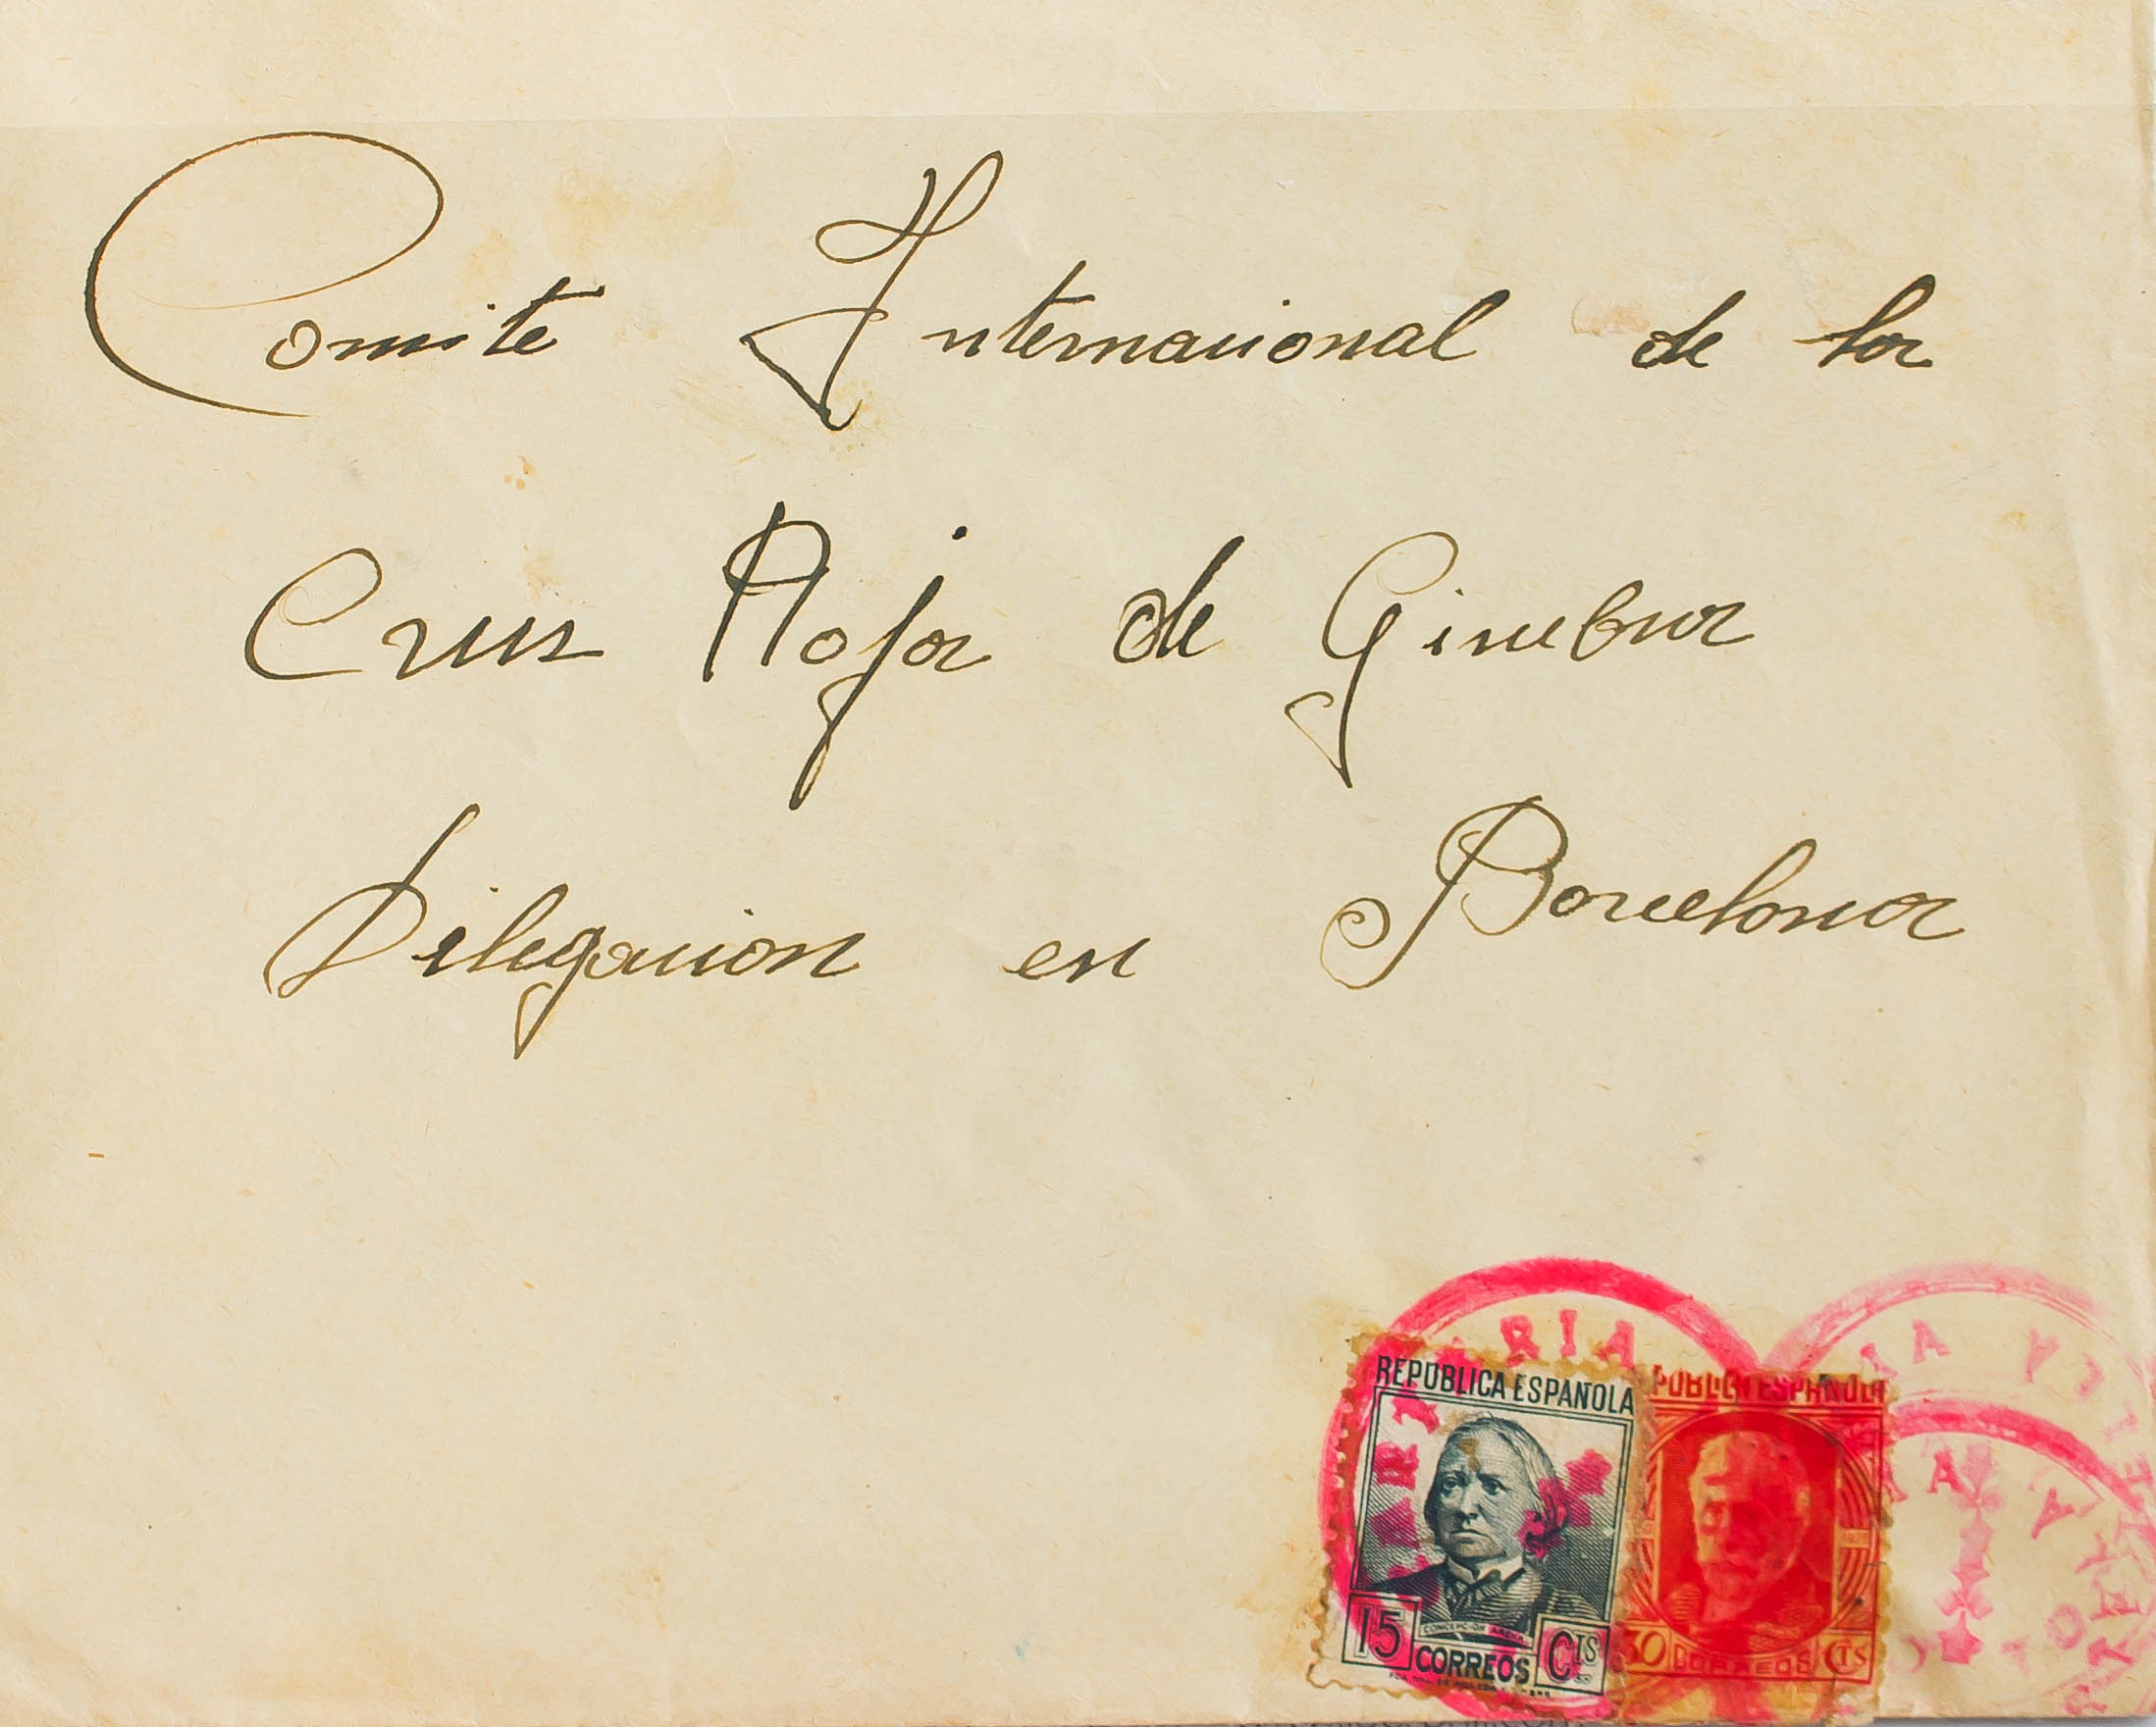 Comite Internacional de la
Cruz Roja de Ginebra
Delegacion en Barcelona
ARIA
REPÚBLICA ESPAÑOLA
PÚBLICA ESPAÑOLA
15 CORREOS CTS
CONCEPCIÓN ARENAL
30 CORREOS CTS